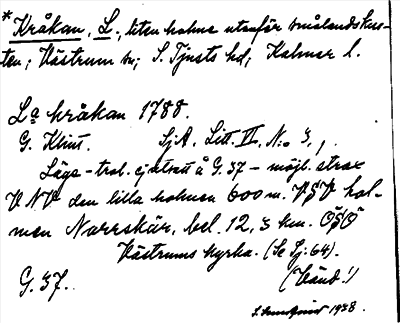 *Kråkan, L., liten holme utanför smålandskus-
ten; Västrum sn; S. Tjusts hd; Kalmar l.
La kråkan 1788.
G. Klint. SjA. Litt. II. No 3,
Läge - trol. ej utsatt å G.37 - möjl. strax
VNV den lilla holmen 600 m. VSV hol-
men Narrskär, bel. 12,3 km. OSO
Västrums kyrka. (Se Sj:64).
G.37. (Vänd!)
1938.